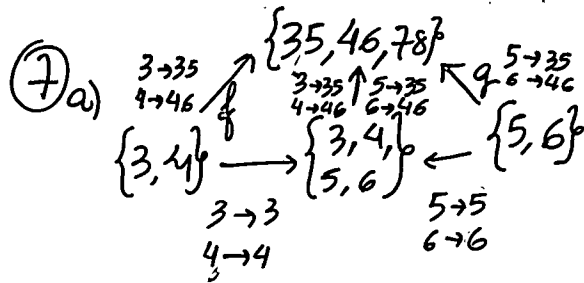 {35, 46, 78}
7 a)
3→35
4→46
f
3→35 5→35
4→46 6→46
g 5→35
6→46
{3, 4} → {3, 4, 5, 6} ← {5, 6}
3→3
4→4
5→5
6→6